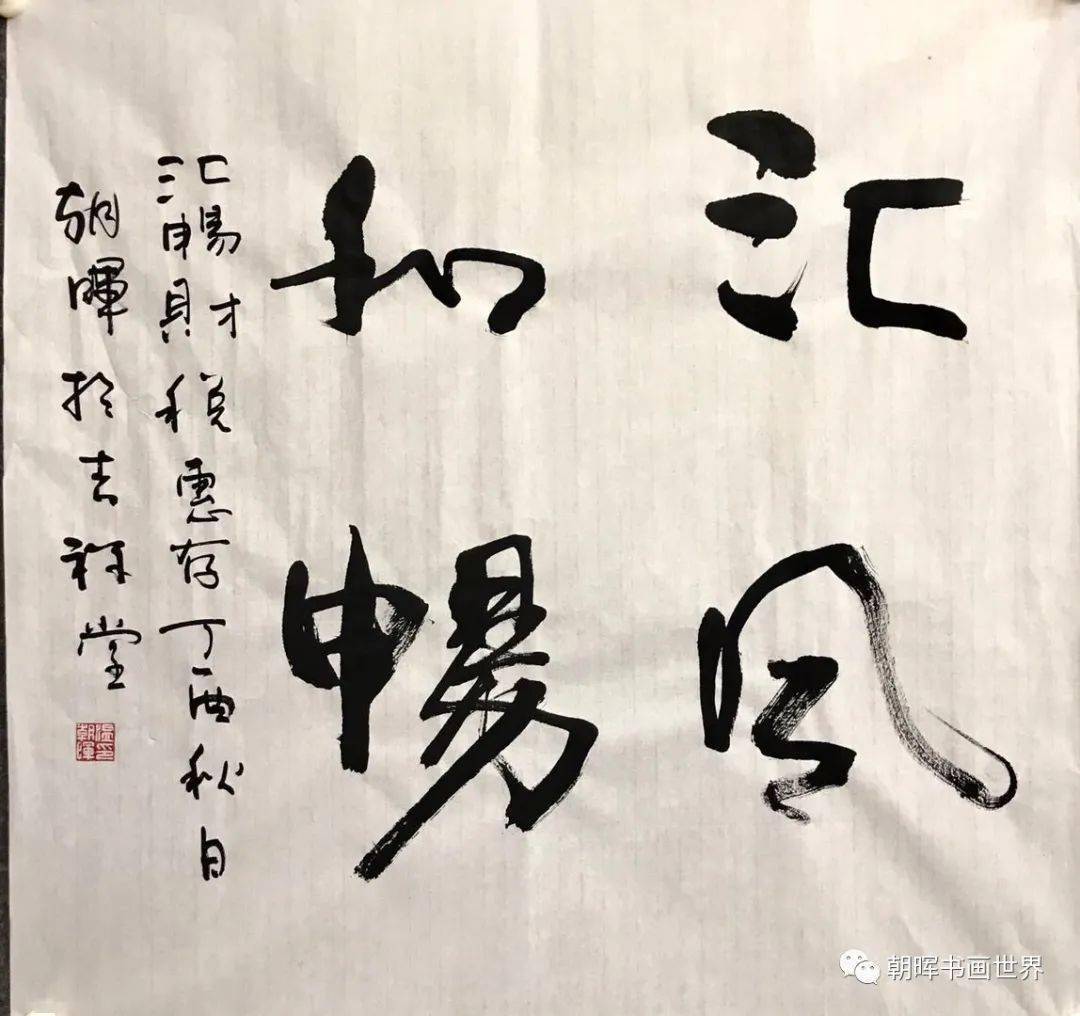 汇风
和暢
汇暢財税惠存丁酉秋日
朝暉於吉祥堂
温印朝暉
朝晖书画世界